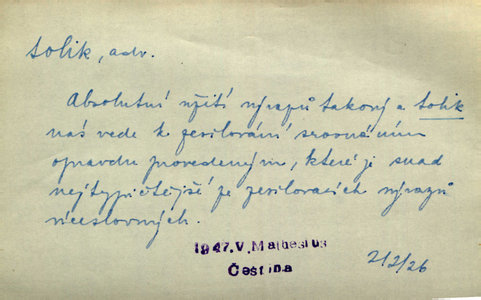 tolik, adv.
Absolutní užití výrazů takový a tolik
nás vede k zesilování srovnáním
opravdu provedeným, které je snad
nejtypičtější ze zesilovacích výrazů
víceslovných.
1947.V.Mathesius
Čeština
2/2/26